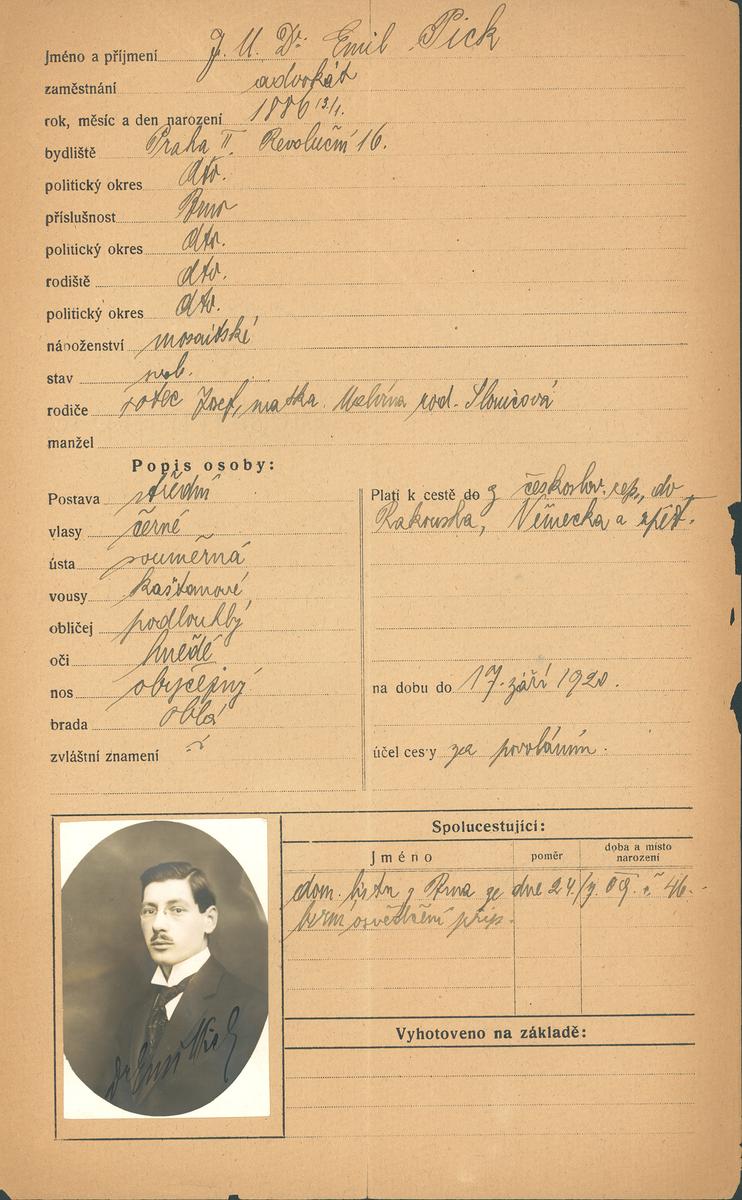 Jméno a příjmení J. U. Dr. Emil Pick
zaměstnání advokát
rok, měsíc a den narození 1886
bydliště Praha II. Revoluční 16.
politický okres dto.
příslušnost Brno
politický okres dto.
rodiště dto.
politický okres dto.
náboženství mosaitské
stav
rodiče otec Josef, matka Malvina rod.
manžel
Popis osoby:
Postava střední
vlasy černé
ústa souměrná
vousy kaštanové
obličej podlouhlý
oči hnědé
nos obyčejný
brada oblá
zvláštní znamení
Platí k cestě do z českoslov. rep., do
Rakouska, Německa a zpět.
na dobu do 17. září 1920.
účel cesty za povoláním.
Spolucestující:
Jméno poměr doba a místo narození
dom. list z Brna ze dne č. 46.
osvědčení přip.
Vyhotoveno na základě:
Dr Emil Pick